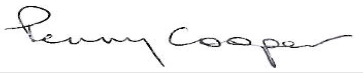 Penny Cooper